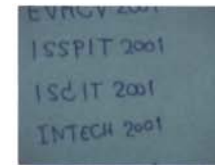 ISSPIT 2001
ISCIT 2001
INTECH 2001